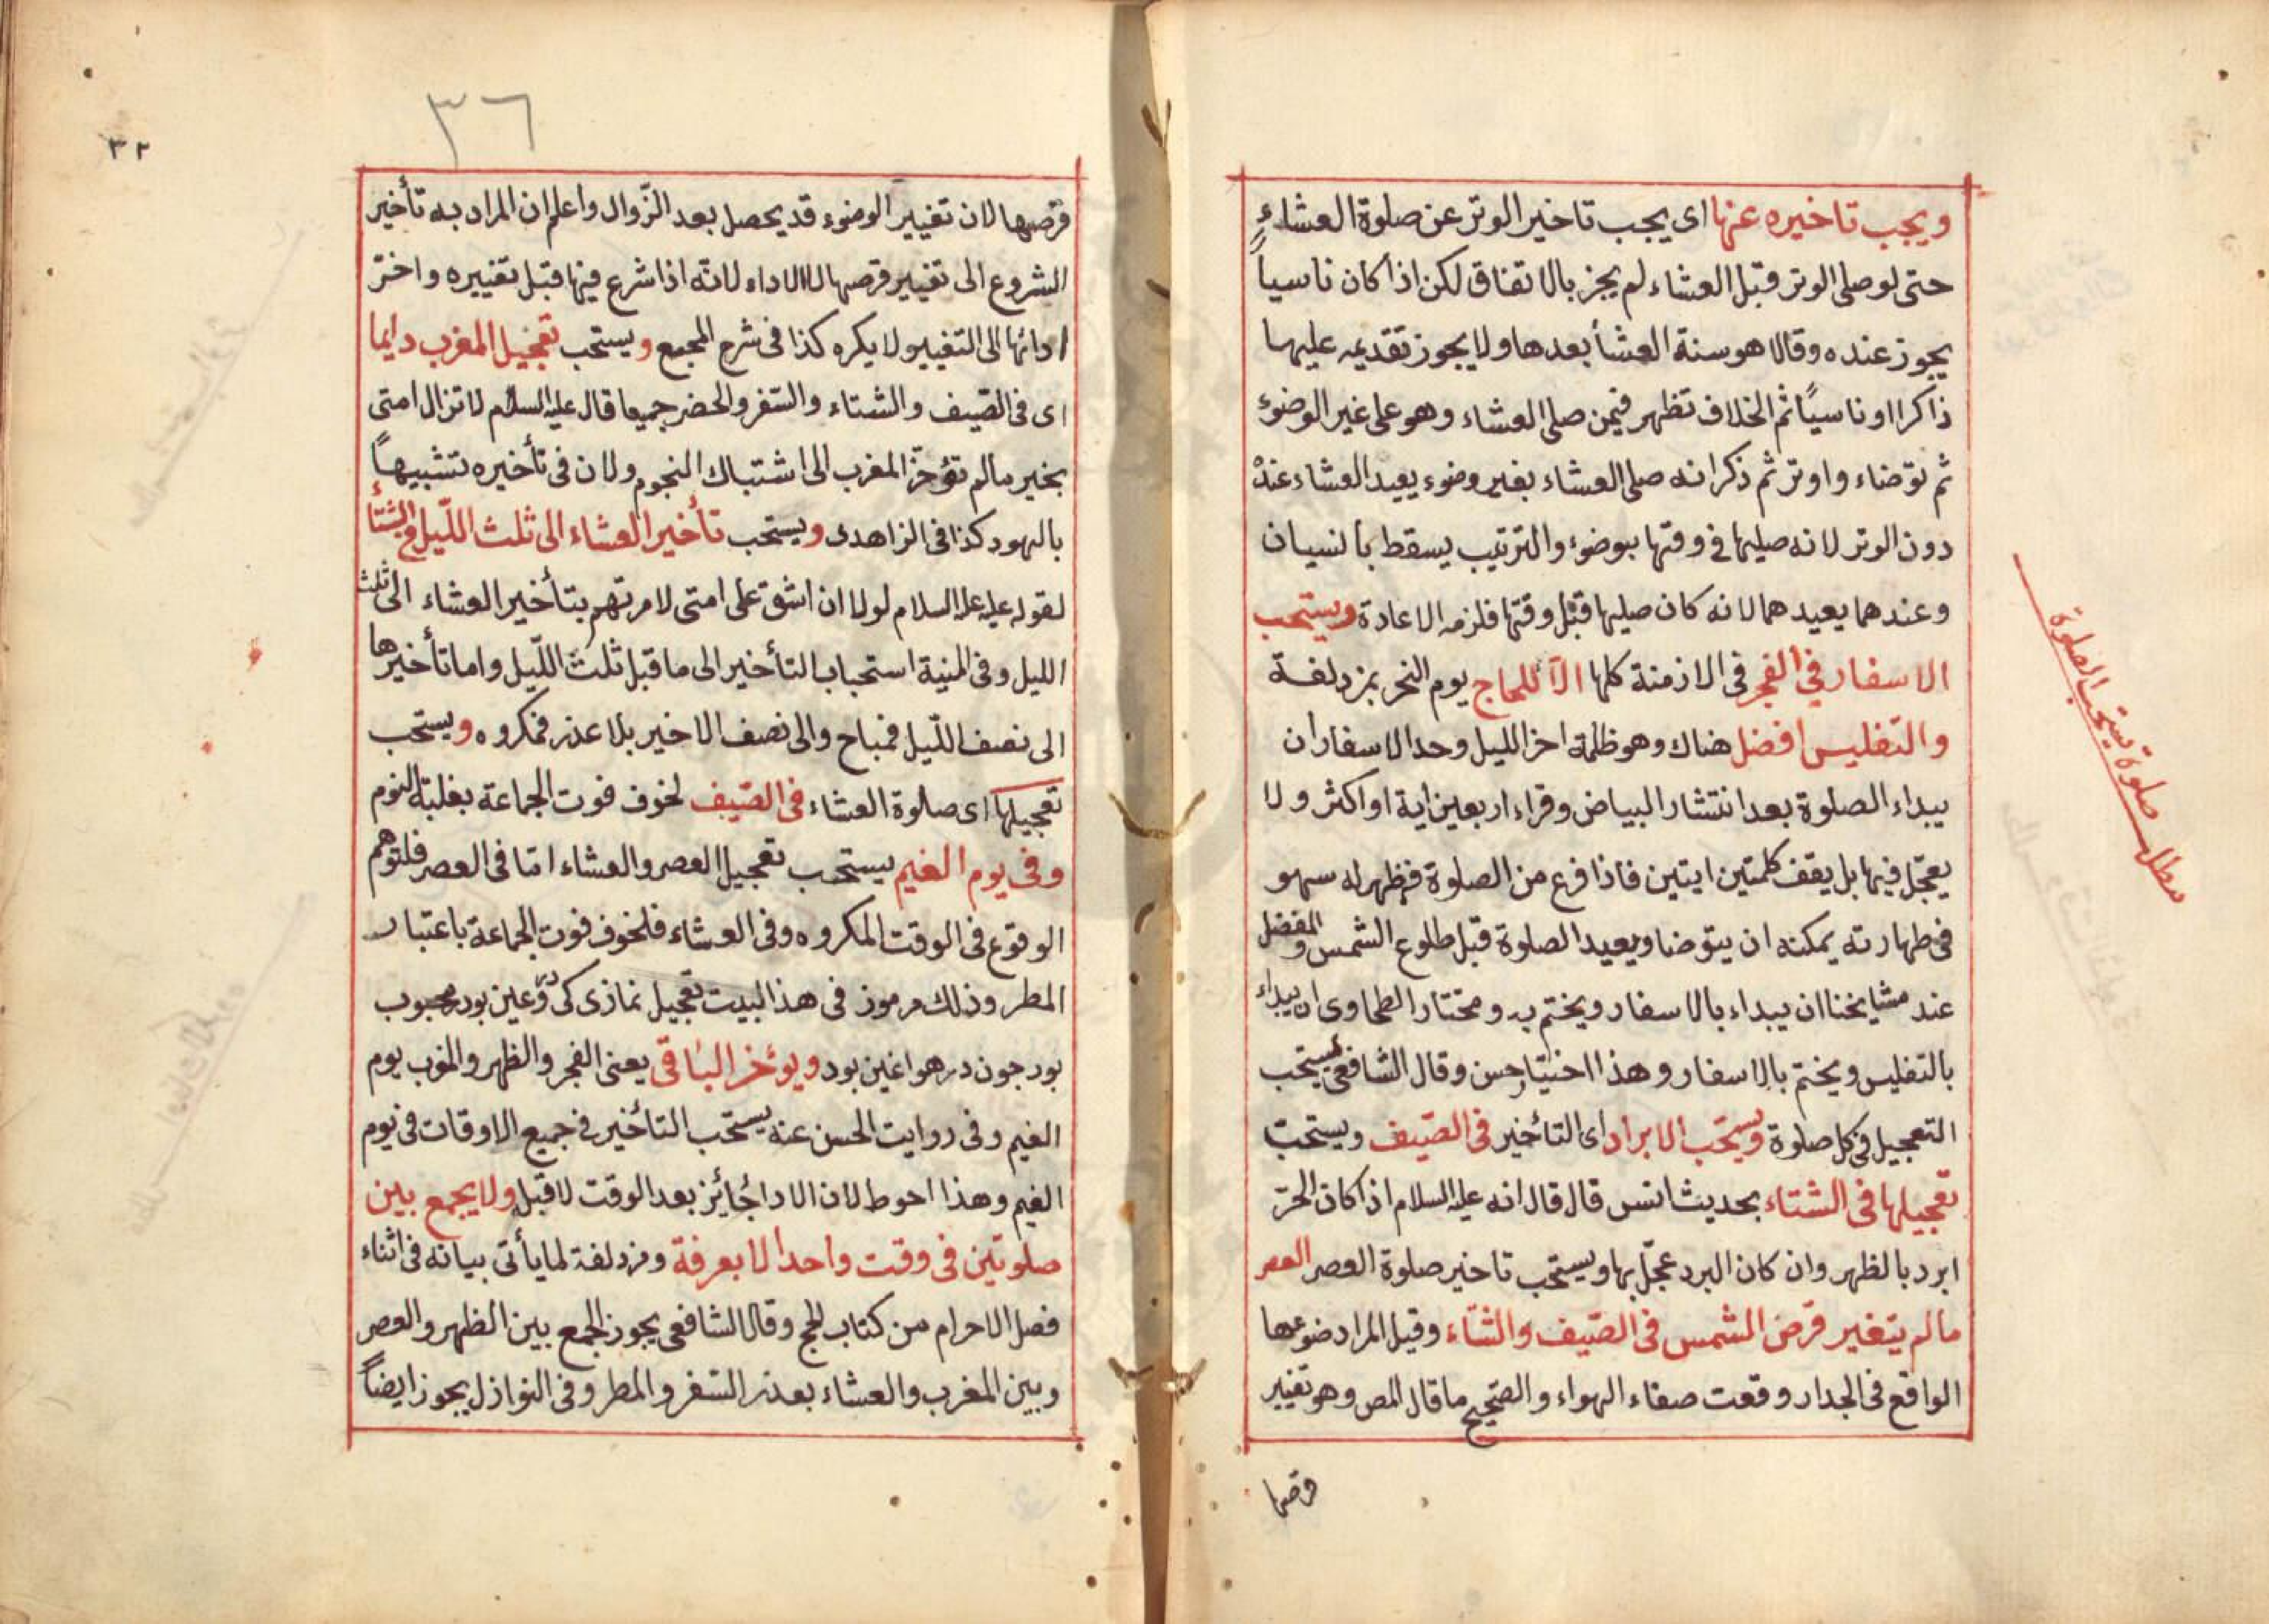 ويجب تاخيره عنها اى يجب تاخير الوتر عن صلوة العشاء
حتى لو صلى الوتر قبل العشاء لم يجز بالاتفاق لكن اذا كان ناسياً
يجوز عنده وقالا هو سنة العشأ بعدها ولا يجوز تقديمه عليها
ذاكرا او ناسياً ثم الخلاف تظهر فيمن صلى العشاء وهو على غير الوضوء
ثم توضاء واوتر ثم ذكر انه صلى العشاء بغير وضوء يعيد العشاء عنده
دون الوتر لانه صليها فى وقتها بوضوء والترتيب يسقط بالنسيان
وعندهما يعيدهما لانه كان صليها قبل وقتها فلزمه الاعادة ويستحب
الاسفار فى الفجر فى الازمنة كلها الا للحاج يوم النحر بمزدلفة
والتغليس افضل هناك وهو ظلمة اخر الليل وحد الاسفار ان
يبداء الصلوة بعد انتشار البياض وقراء اربعين اية او اكثر ولا
يعجّل فيها بل يقف كلمتين ايتين فاذا فرغ من الصلوة فظهر له سهو
فى طهارته يمكنه ان يتوضا ويعيد الصلوة قبل طلوع الشمس والمفضل
عند مشايخنا ان يبداء بالاسفار ويختم به ومختار الطحاوى ان يبداء
بالتغليس ويختم بالاسفار وهذا اختيار حسن وقال الشافعى يستحب
التعجيل فى كل صلوة ويستحب الابراد اى التأخير فى الصّيف ويستحب
تعجيلها فى الشتاء بحديث انس قال قال انه عليه السلام اذا كان الحرّ
ابرد بالظهر وان كان البرد عجّل بها ويستحب تاخير صلوة العصر العصر
مالم يتغير قرص الشمس فى الصّيف والشتاء وقيل المراد ضوءها
الواقع فى الجدار وقعت صفاء الهواء والصّحيح ما قال المص وهو تغيير
قرصها
مطلب صلوة يستحب الصلوة
٣٦
٣٢
قرصها لان تغيير الوضوء قد يحصل بعد الزّوال واعلم ان المراد به تأخير
الشروع الى تغيير قرصها لا الاداء لانّه اذا شرع فيها قبل تغييره واخّر
ادائها الى التغيير لا يكره كذا فى شرح المجمع ويستحب تعجيل المغرب دايما
اى فى الصّيف والشتاء والسّفر والحضر جميعا قال عليه السلام لا تزال امتى
بخير مالم تؤخّر المغرب الى اشتباك النجوم ولان فى تأخيره تشبيهاً
باليهود كذا فى الزاهدى ويستحب تأخير العشاء الى ثلث اللّيل فى الشتأ
لقوله عليه السلام لولا ان اشق على امتى لامرتهم بتأخير العشاء الى ثلث
الليل وفى المنية استحباب التأخير الى ما قبل ثلث اللّيل واما تأخيرها
الى نصف اللّيل فمباح والى نصف الاخير بلا عذر فمكروه ويستحب
تعجيلها اى صلوة العشاء فى الصّيف لخوف فوت الجماعة بغلبة النوم
وفى يوم الغيم يستحب تعجيل العصر والعشاء امّا فى العصر فلتوهم
الوقوع فى الوقت المكروه وفى العشاء فلخوف فوت الجماعة باعتبار
المطر وذلك مرموز فى هذا البيت تعجيل نمازى كى دوّعين بود محبوب
بود جون در هوا غين بود ويؤخر الباقى يعنى الفجر والظهر والمغرب يوم
الغيم وفى روايت الحسن عنه يستحب التأخير فى جميع الاوقات فى يوم
الغيم وهذا احوط لان الادا جُائز بعد الوقت لا قبله ولا يجمع بين
صلوتين فى وقت واحد الا بعرفة ومزدلفة لما يأتى بيانه فى اثناء
فصل الاحرام من كتاب الحج وقال الشافعى يجوز الجمع بين الظهر والعصر
وبين المغرب والعشاء بعذر السّفر والمطر وفى النوازل يجوز ايضاً